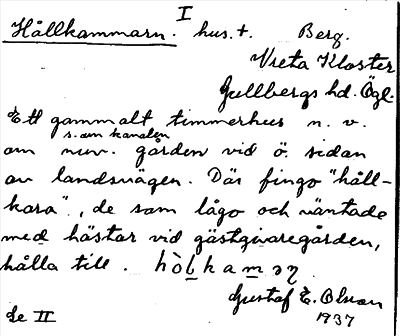 I
Hållkammarn. hus.t. Berg.
Vreta Kloster
Gullbergs hd. Ögl.
Ett gammalt timmerhus n. v.
s. om kanalen
om nuv. gården vid ö. sidan
av landsvägen. Där fingo "håll-
kara", de som lågo och väntade
med hästar vid gästgivaregården,
hålla till.
Gustaf E. Olsson
1937
se II